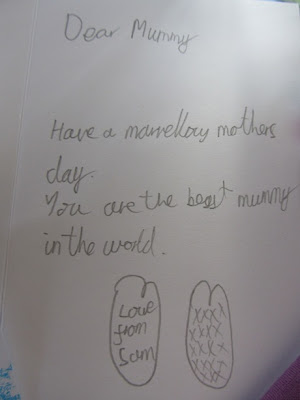 Dear Mummy
Have a marvellous mothers
day.
You are the best mummy
in the world.
Love
from
Sam
xxxx
xxxx
xxxx
xxxx
xxx
xx